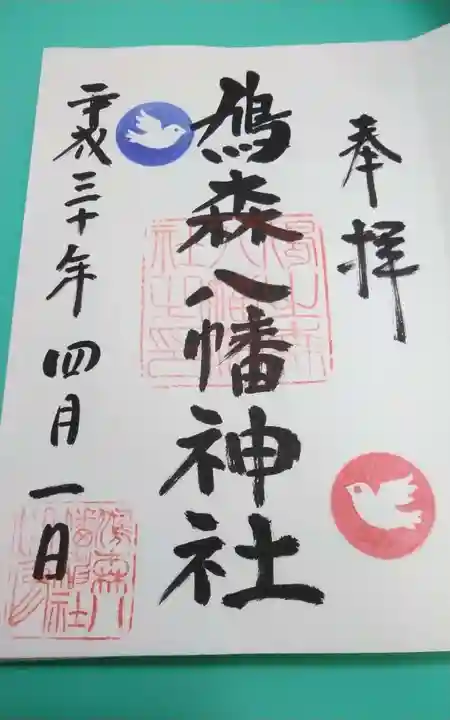 奉拝
鳩森八幡神社
平成三十年四月一日